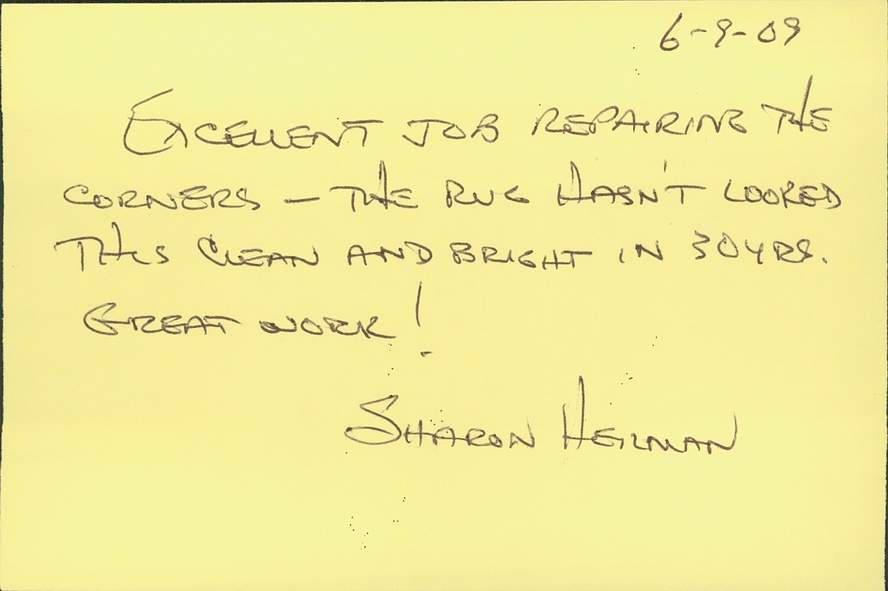 6-9-09
EXCELLENT JOB REPAIRING THE
CORNERS – THE RUG HASN'T LOOKED
THIS CLEAN AND BRIGHT IN 30 YRS.
GREAT WORK!
SHARON HEILMAN